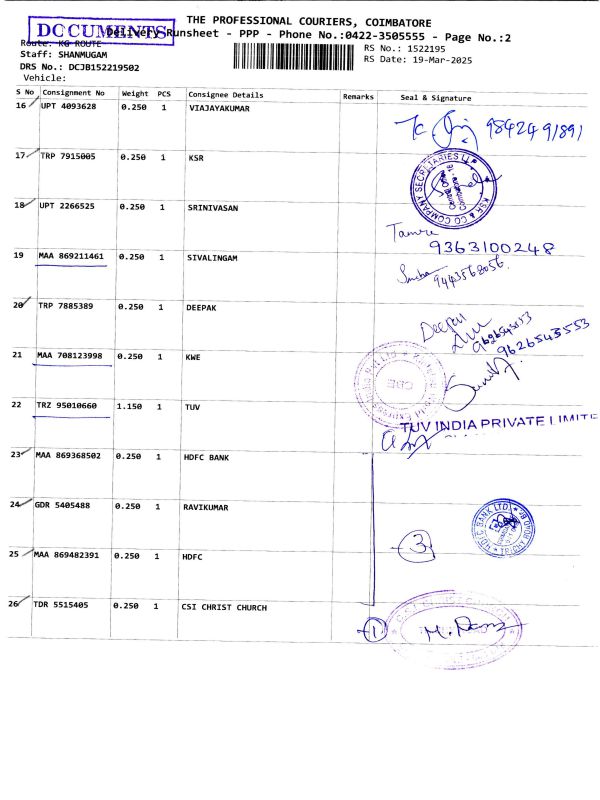 THE PROFESSIONAL COURIERS, COIMBATORE
DOCUMENTS
Delivery Runsheet - PPP - Phone No.:0422-3505555 - Page No.:2
Route: KG ROUTE
RS No.: 1522195
Staff: SHANMUGAM
RS Date: 19-Mar-2025
DRS No.: DCJB152219502
Vehicle:
S No Consignment No Weight PCS Consignee Details Remarks Seal & Signature
16 UPT 4093628 0.250 1 VIAJAYAKUMAR
9842491891
17 TRP 7915005 0.250 1 KSR
KSR & CO COMPANY SECRETARIES LLP
18 UPT 2266525 0.250 1 SRINIVASAN
9363100248
19 MAA 869211461 0.250 1 SIVALINGAM
9443568056
20 TRP 7885389 0.250 1 DEEPAK
Deepak
9626543553
9626543553
21 MAA 708123998 0.250 1 KWE
CBE
22 TRZ 95010660 1.150 1 TUV
TUV INDIA PRIVATE LIMITE
23 MAA 869368502 0.250 1 HDFC BANK
24 GDR 5405488 0.250 1 RAVIKUMAR
HDFC BANK LTD. TRICHY ROAD BR
25 MAA 869482391 0.250 1 HDFC
3
26 TDR 5515405 0.250 1 CSI CHRIST CHURCH
1